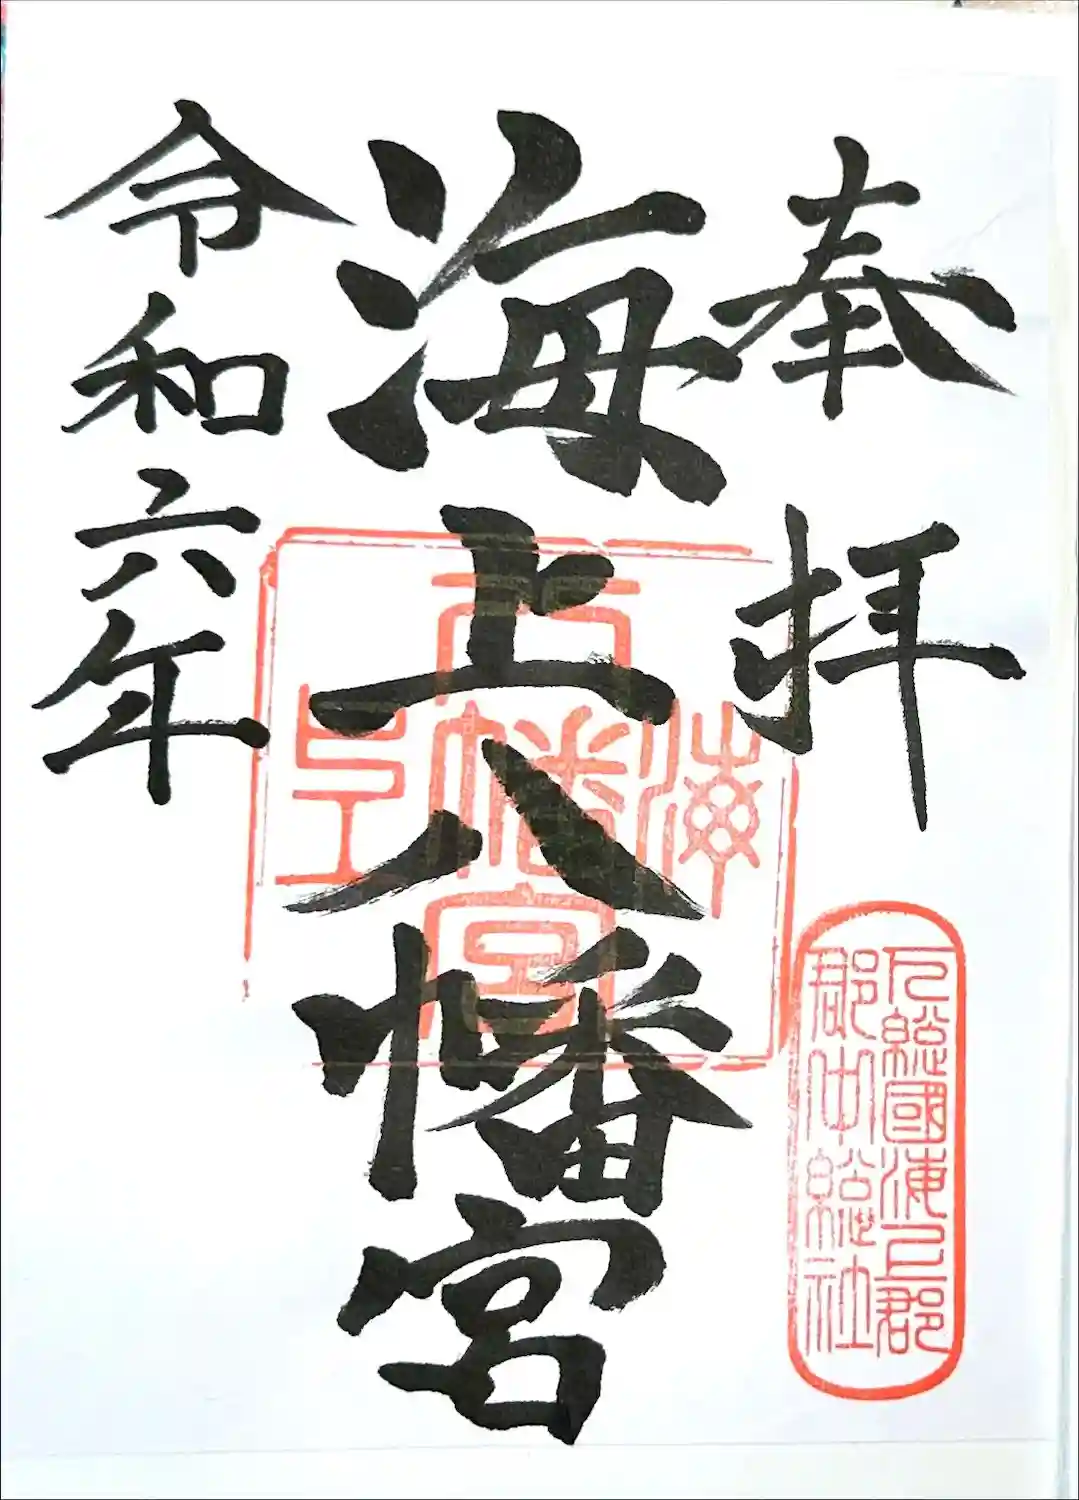 奉拝
海上八幡宮
令和六年
下総國海上郡
郡中総社
海上
八幡宮